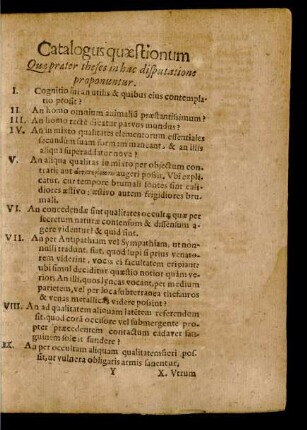 Catalogus quæstionum
Quæ præter theses in hac disputatione
proponuntur.
I. Cognitio sui an utilis & quibus eius contemplatio
prosit?
II. An homo omnium animaliũ præstantissimum?
III. An homo recte dicatur parvus mundus?
IV. An in mixto qualitates elementorum essentiales
secundum suam formam maneant, & an illis
aliqua superaddatur nova?
V. An aliqua qualitas in mixto per objectum contrarii
aut augeri possit, Vbi explicatur,
cur tempore brumali fontes sint calidiores
æstivo; æstivo autem frigidiores brumali.
VI. An concedendæ sint qualitates occultę quæ per
secretum naturæ consensum & dissensum agere
videntur? & quid sint.
VII. An per Antipathiam vel Sympathiam, ut nonnulli
tradunt, fiat, quod lupi si prius venatorem
viderint, vocis ei facultatem eripiant;
ubi simul deciditur quæstio notior quàm verior.
An illi, quos lyncas vocant, per medium
parietem, vel per loca subterranea thesauros
& venas metallicas videre possint?
VIII. An ad qualitatem aliquam latētem referendum
sit, quod corã occisore vel submergente propter
præcedentem contactum cadaver sanguinem
soleat fundere?
IX. An per occultam aliquam qualitatem fieri possit,
ut vulnera obligatis armis sanentur,
Y X. Vtrum